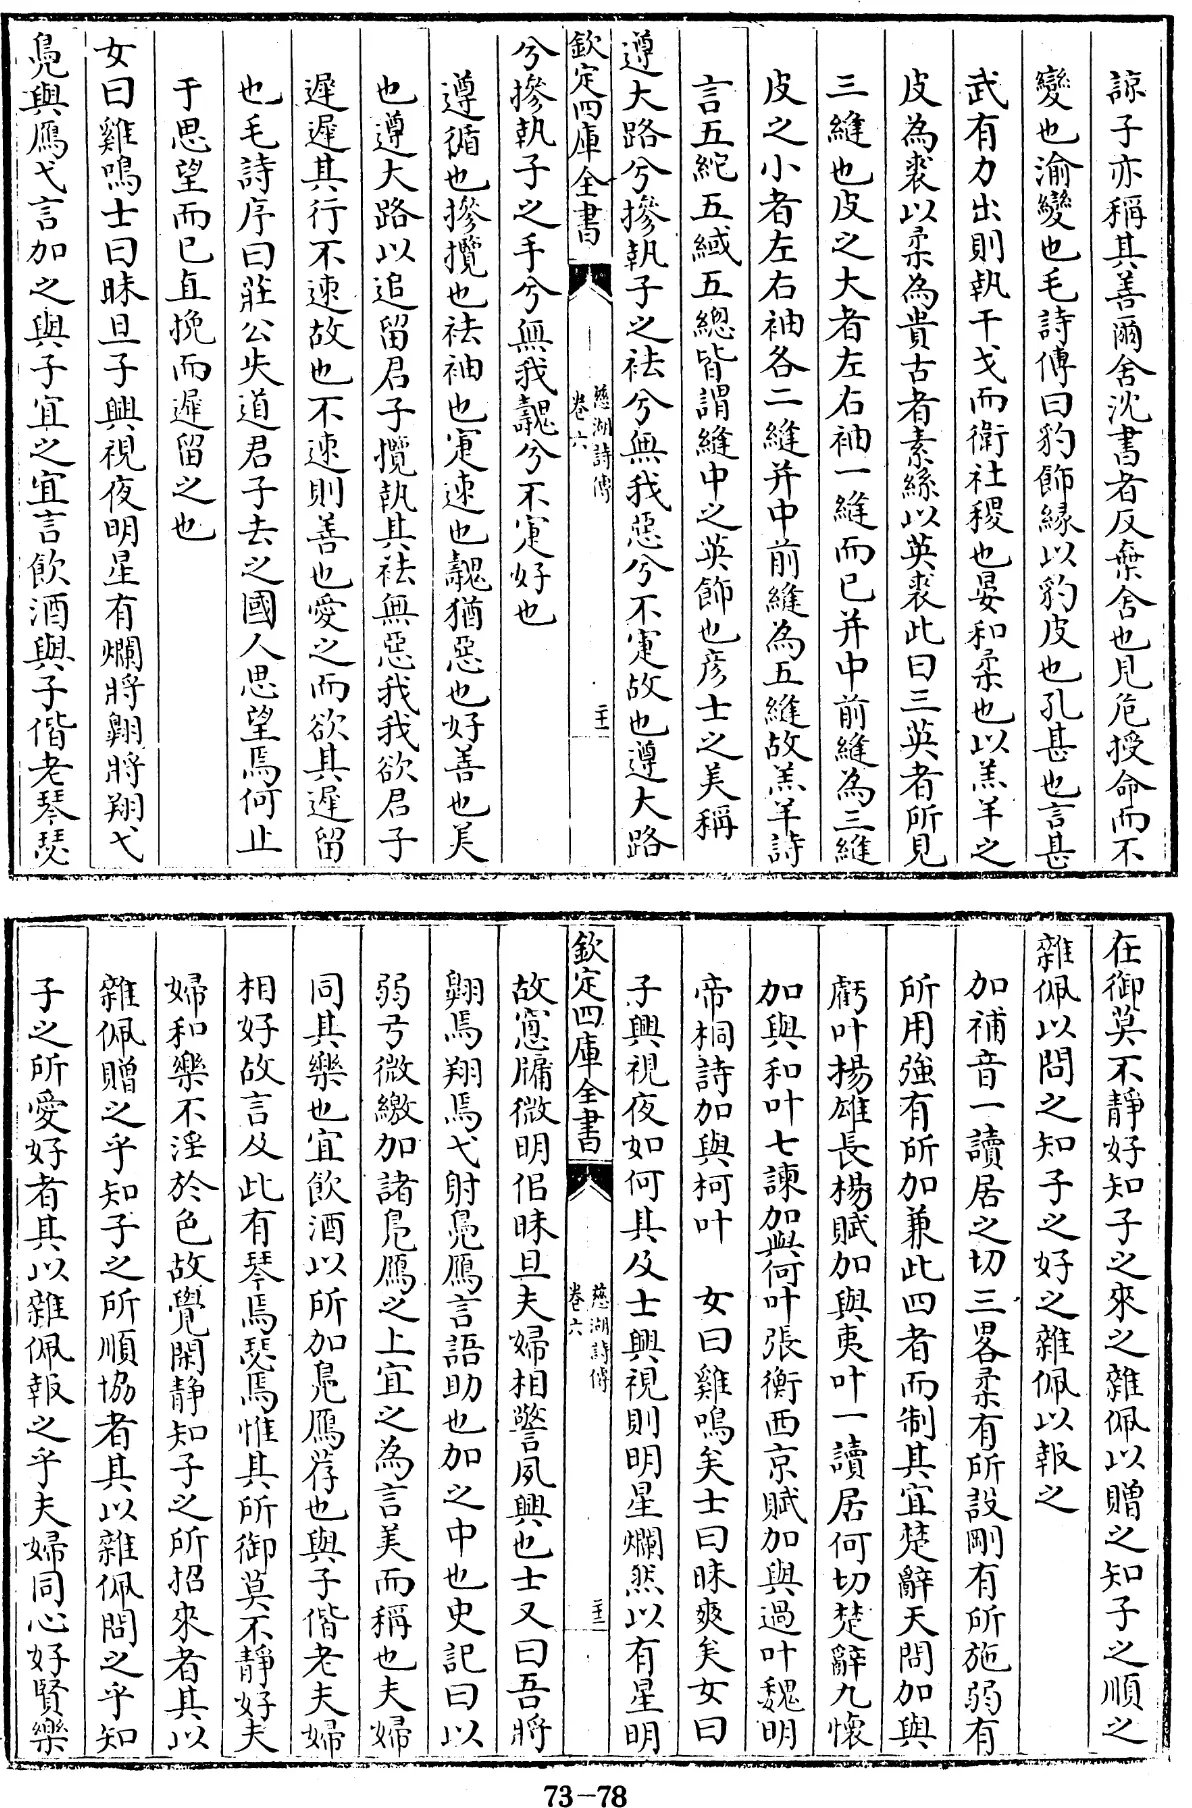 諒子亦稱其善爾舍沈書者反棄舍也見危授命而不
變也渝變也毛詩傳曰豹飾緣以豹皮也孔甚也言甚
武有力出則執干戈而衛社稷也晏和柔也以羔羊之
皮為裘以柔為貴古者素絲以英裘此曰三英者所見
三縫也皮之大者左右袖一縫而已并中前縫為三縫
皮之小者左右袖各二縫并中前縫為五縫故羔羊詩
言五紽五緎五總皆謂縫中之英飾也彦士之美稱
遵大路兮摻執子之袪兮無我惡兮不寁故也遵大路
欽定四庫全書
慈湖詩傳
卷六
二十一
兮摻執子之手兮無我魗兮不寁好也
遵循也摻攬也袪袖也寁速也魗猶惡也好善也美
也遵大路以追留君子攬執其袪無惡我我欲君子
遲遲其行不速故也不速則善也愛之而欲其遲留
也毛詩序曰莊公失道君子去之國人思望焉何止
于思望而已直挽而遲留之也
女曰雞鳴士曰昧旦子興視夜明星有爛將翺將翔弋
鳧與鴈弋言加之與子宜之宜言飲酒與子偕老琴瑟
在御莫不靜好知子之來之雜佩以贈之知子之順之
雜佩以問之知子之好之雜佩以報之
加補音一讀居之切三畧柔有所設剛有所施弱有
所用強有所加兼此四者而制其宜楚辭天問加與
虧叶揚雄長楊賦加與夷叶一讀居何切楚辭九懷
加與和叶七諫加與何叶張衡西京賦加與過叶魏明
帝桐詩加與柯叶　女曰雞鳴矣士曰昧爽矣女曰
子興視夜如何其及士興視則明星爛然以有星明
欽定四庫全書
慈湖詩傳
卷六
二十二
故窓牖微明佀昧旦夫婦相警言夙興也士又曰吾將
翺焉翔焉弋射鳧鴈言語助也加之中也史記曰以
弱弓微繳加諸鳧鴈之上宜之為言美而稱也夫婦
同其樂也宜飲酒以所加鳧鴈荐也與子偕老夫婦
相好故言及此有琴焉瑟焉惟其所御莫不靜好夫
婦和樂不淫於色故覺閑靜知子之所招來者其以
雜佩贈之乎知子之所順協者其以雜佩問之乎知
子之所愛好者其以雜佩報之乎夫婦同心好賢樂
73-78